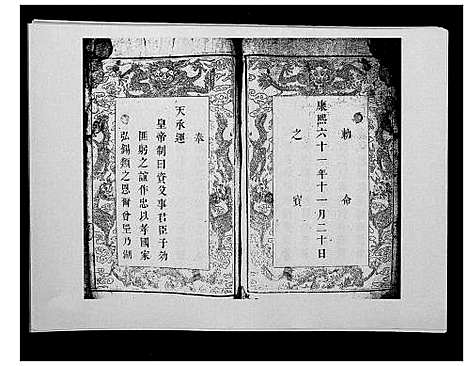 勅命
康熙六十一年十一月二十日
之寳
奉
天承運
皇帝制曰資父事君臣子効
匪躬之誼作忠以孝國家
弘錫類之恩爾曾
乃湖